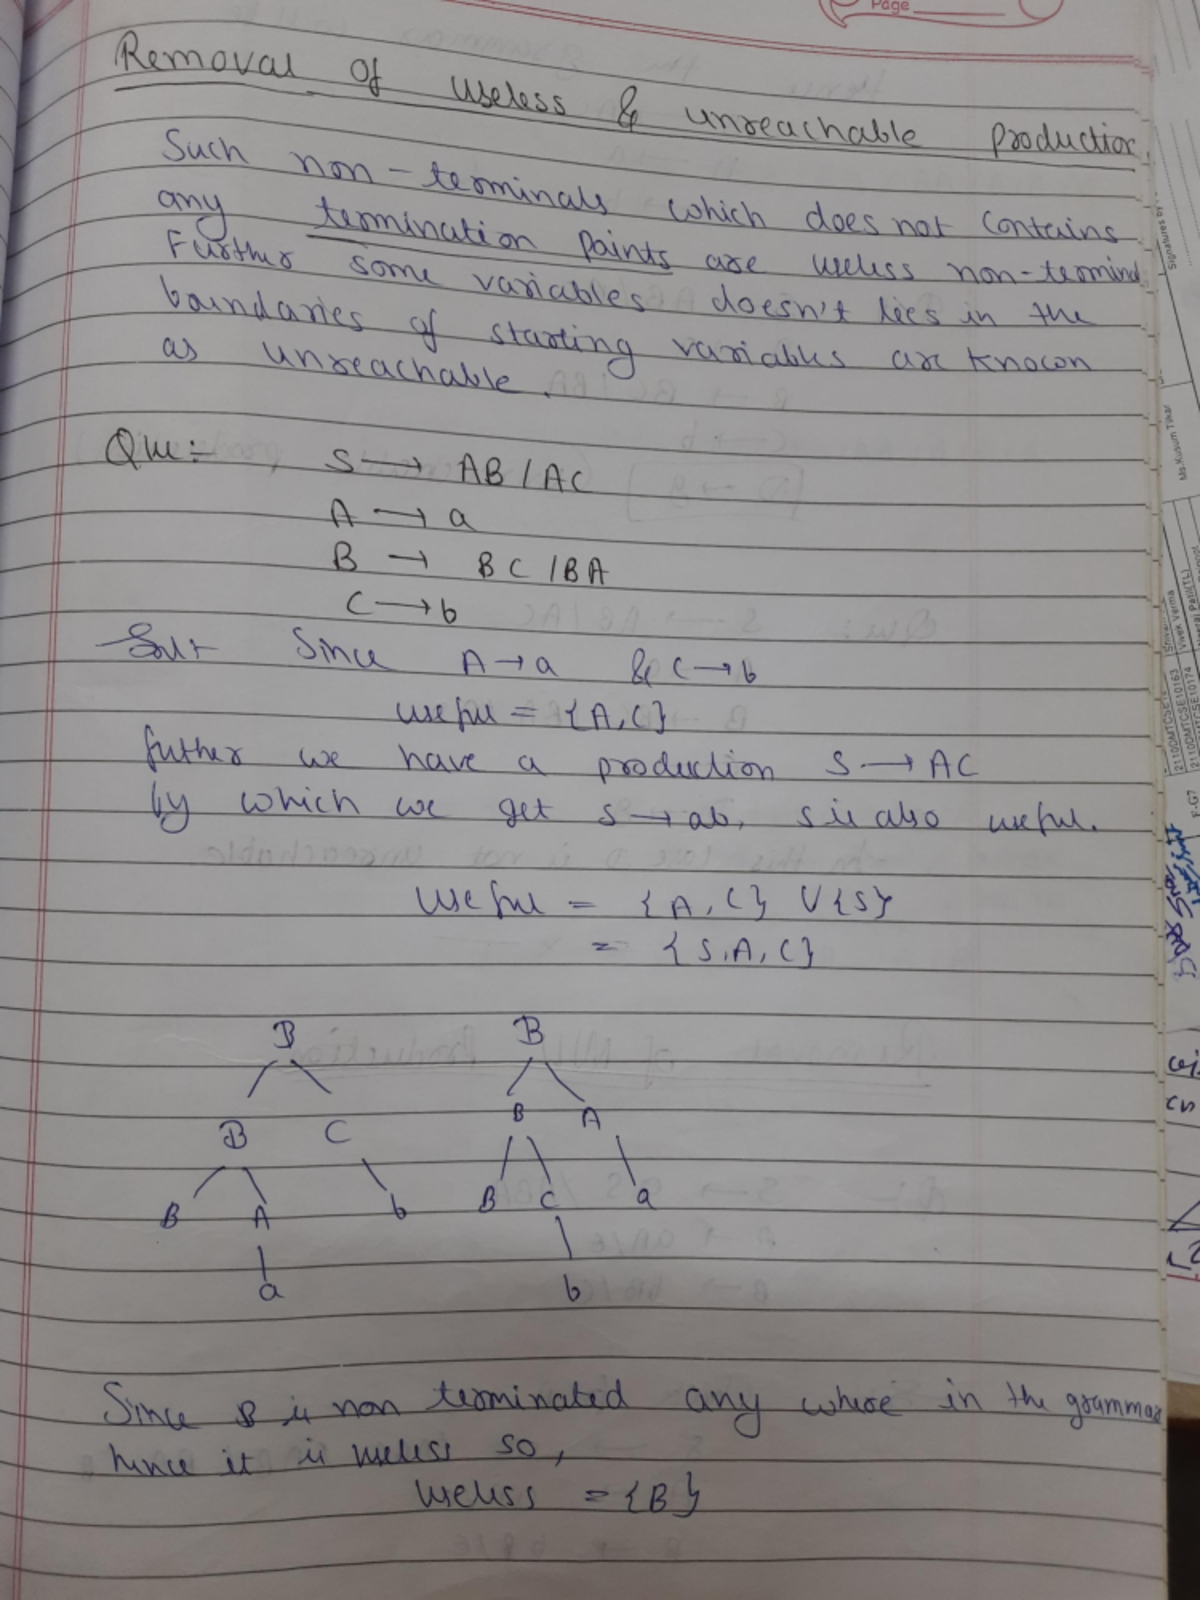 Page
Removal of useless & unreachable production.
Such non-terminals which does not contains
any termination points are useless non-termind
Further some variables doesn't lies in the
boundaries of starting variables are known
as unreachable.
Que:- S → AB / AC
A → a
B → BC / BA
C → b
Sol:- Since A → a & C → b
useful = {A, C}
futher we have a production S → AC
by which we get S → ab, S is also useful.
useful = {A, C} ∪ {S}
= {S, A, C}
B B
B C B A
B A b B C a
a b
Since B is non terminated any where in the grammar
hence it is useless so,
useless = {B}
Signatures by
Ms.Kusum Tikar
Vivek Verma